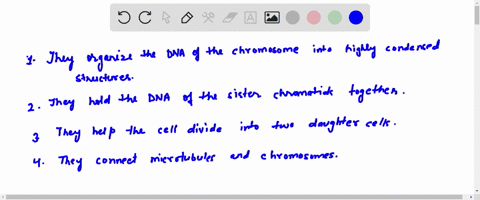 1. They organize the DNA of the chromosome into highly condensed
structures.
2. They hold the DNA of the sister chromatids together.
3 They help the cell divide into two daughter cells.
4. They connect microtubules and chromosomes.